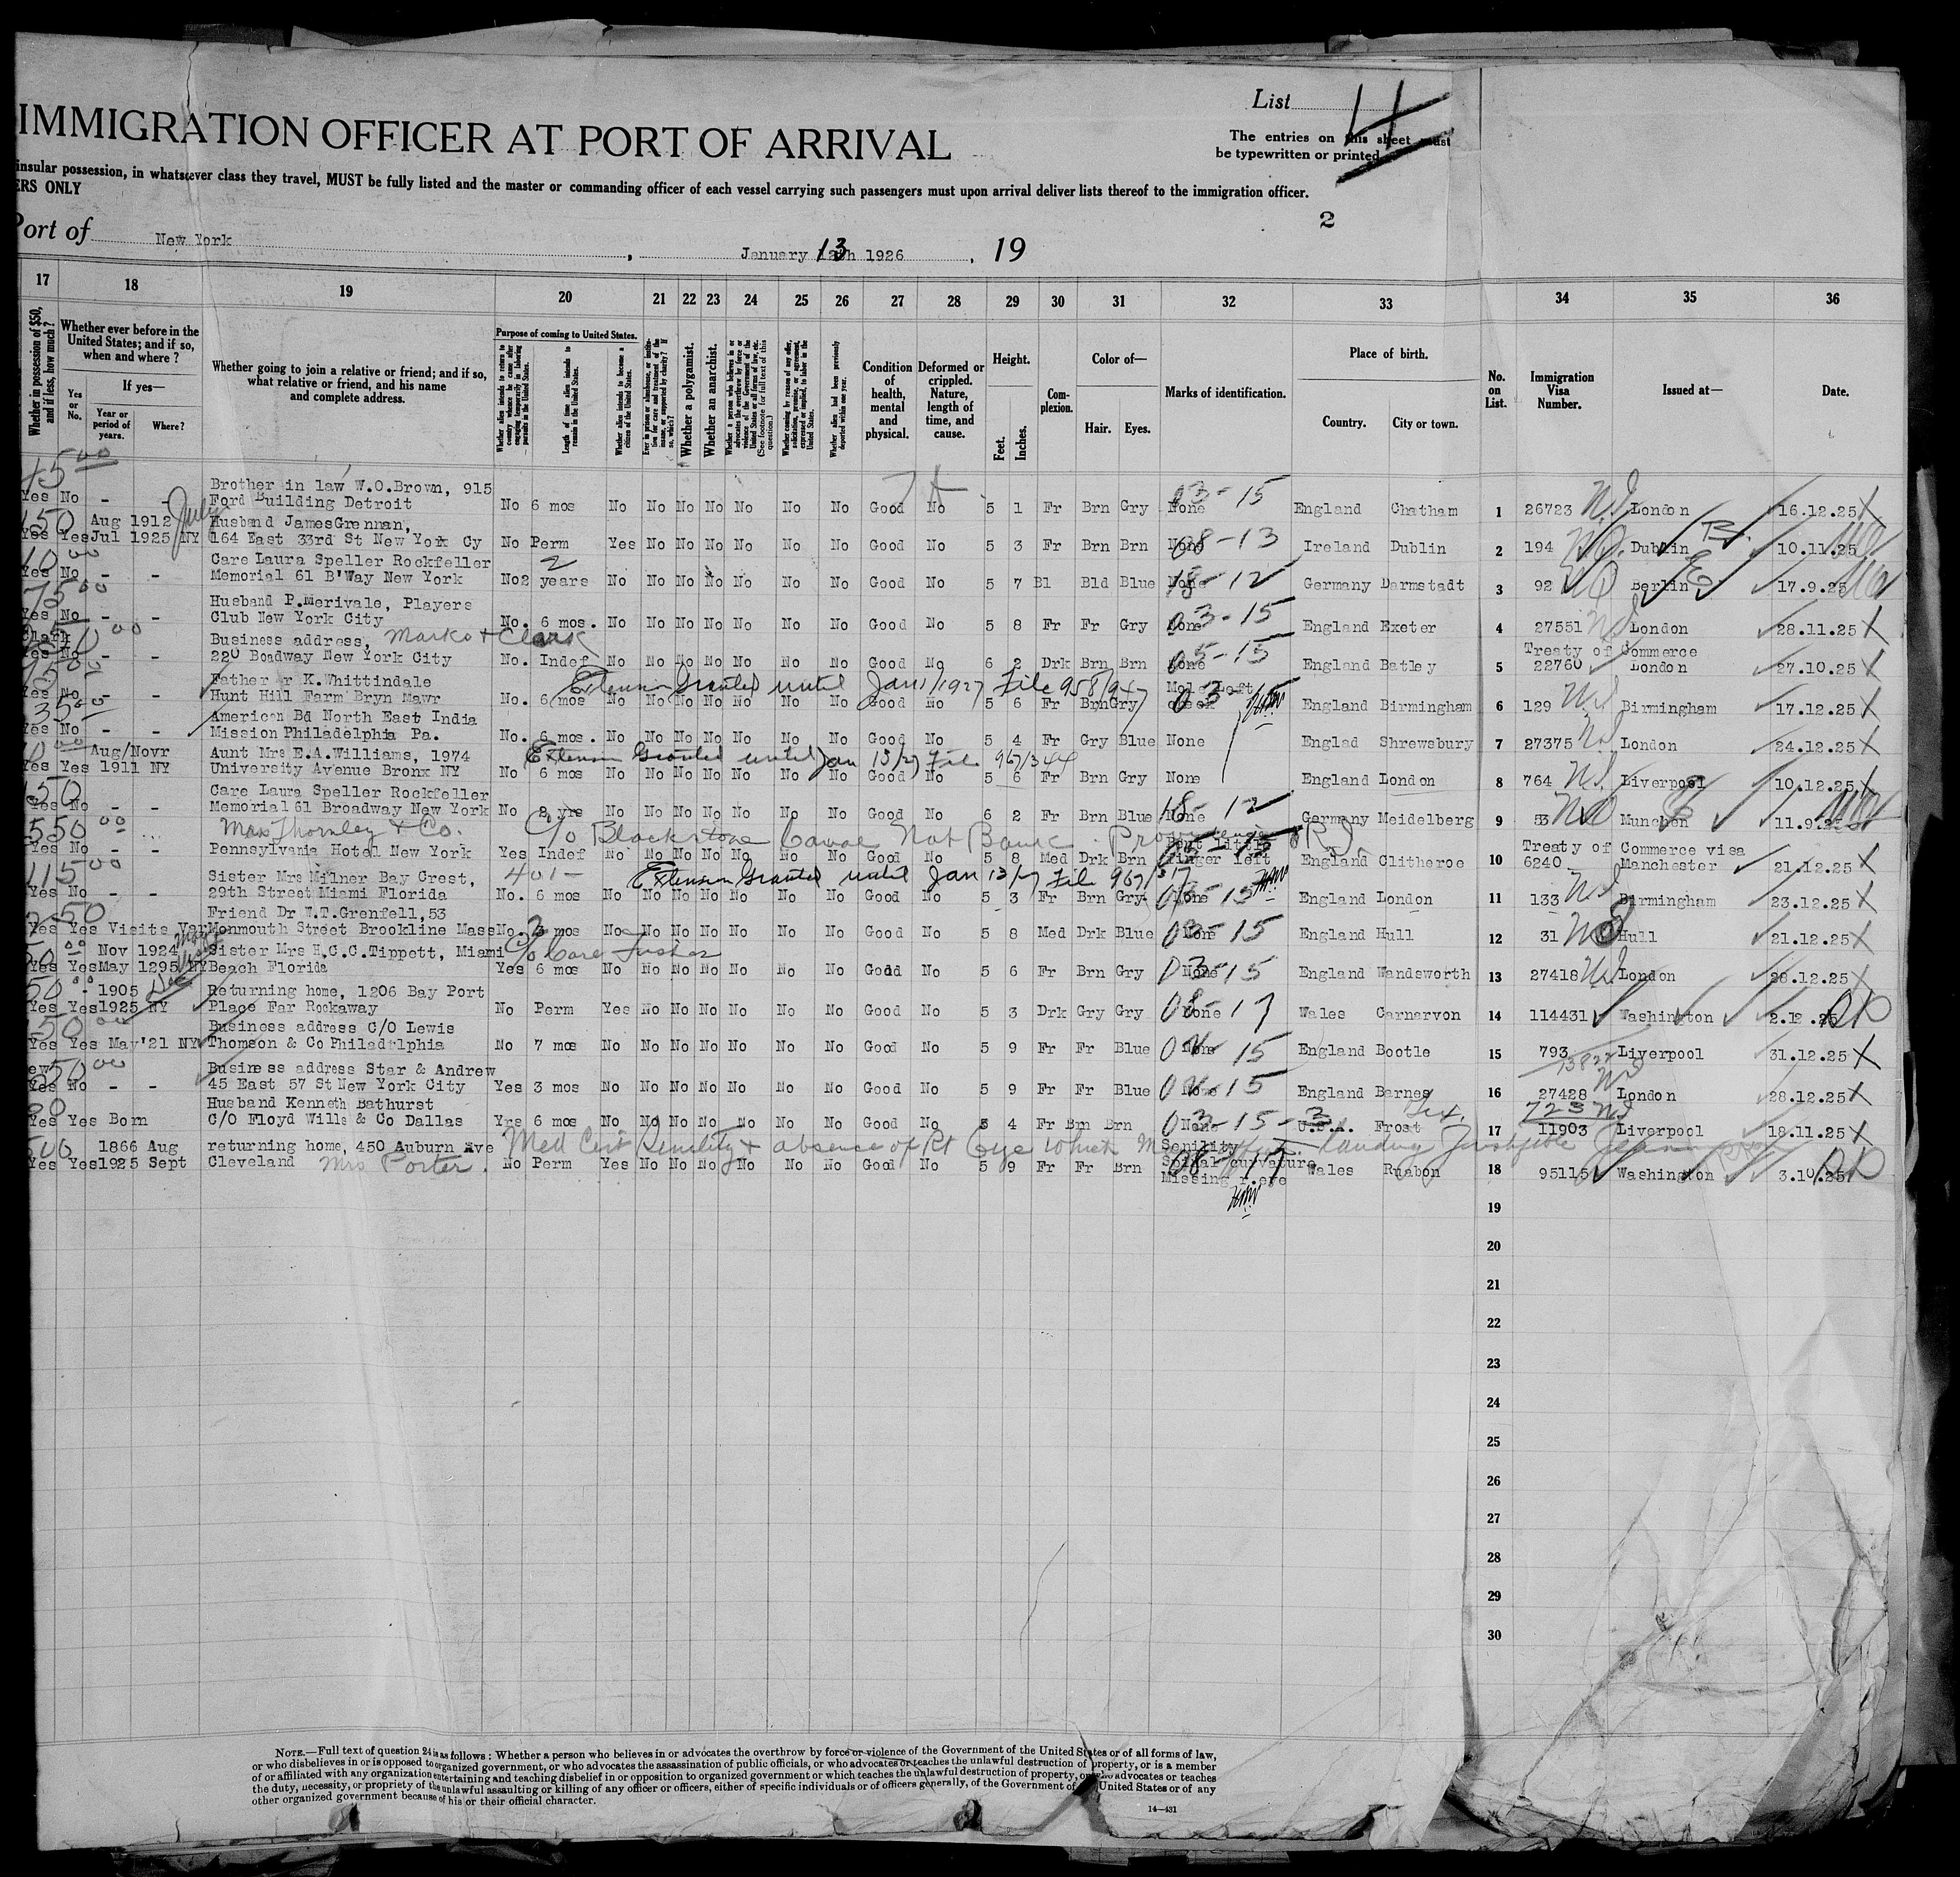 List
IMMIGRATION OFFICER AT PORT OF ARRIVAL
The entries on this sheet must
be typewritten or printed
insular possession, in whatsoever class they travel, MUST be fully listed and the master or commanding officer of each vessel carrying such passengers must upon arrival deliver lists thereof to the immigration officer.
ERS ONLY
2
Port of New York, January 13 12th 1926, 19
17 18 19 20 21 22 23 24 25 26 27 28 29 30 31 32 33 34 35 36
Whether in possession of $50, and if less, how much?
Whether ever before in the United States; and if so, when and where?
If yes—
Yes or No.
Year or period of years.
Where?
Whether going to join a relative or friend; and if so, what relative or friend, and his name and complete address.
Purpose of coming to United States.
Whether alien intends to return to country whence he came after engaging temporarily in laboring pursuits in the United States.
Length of time alien intends to remain in the United States.
Whether alien intends to become a citizen of the United States.
Ever in prison or almshouse, or institution for care and treatment of the insane, or supported by charity? If so, which?
Whether a polygamist.
Whether an anarchist.
Whether a person who believes in or advocates the overthrow by force or violence of the Government of the United States or of all forms of law, etc. (See footnote for full text of this question.)
Whether coming by reason of any offer, solicitation, promise, or agreement, expressed or implied, to labor in the United States.
Whether alien had been previously deported within one year.
Condition of health, mental and physical.
Deformed or crippled. Nature, length of time, and cause.
Height.
Feet. Inches.
Complexion.
Color of—
Hair. Eyes.
Marks of identification.
Place of birth.
Country. City or town.
No. on List.
Immigration Visa Number.
Issued at—
Date.
Brother in law W.O.Brown, 915
Yes No - - Ford Building Detroit No 6 mos No No No No No No No Good No 5 1 Fr Brn Gry None 03-15 England Chatham 1 26723 London 16.12.25
150 Aug 1912 July Husband JamesGrennan,
Yes Yes Jul 1925 NY 164 East 33rd St New York Cy No Perm Yes No No No No No No Good No 5 3 Fr Brn Brn 08-13 Ireland Dublin 2 194 Dublin 10.11.25
Care Laura Speller Rockfeller
Yes No - - Memorial 61 B'Way New York No 2 years No No No No No No No Good No 5 7 Bl Bld Blue None 18-12 Germany Darmstadt 3 92 Berlin 17.9.25
Husband P.Merivale, Players
Yes No - - Club New York City No. 6 mos. No No No No No No No Good No 5 8 Fr Fr Gry None 03-15 England Exeter 4 27551 London 28.11.25
Business address, Marks & Clark Treaty of Commerce
Yes No - - 220 Boadway New York City No. Indef No No No No No No No Good No 6 2 Drk Brn Brn None 05-15 England Batley 5 22760 London 27.10.25
Father r K.Whittindale Extension Granted until Jan 1/1927 File 958/947 Mole Left
Yes No - - Hunt Hill Farm Bryn Mawr No. 6 mos No No No No No No No Good No 5 6 Fr Brn Gry cheek England Birmingham 6 129 Birmingham 17.12.25
American Bd North East India
Yes No - - Mission Philadelphia Pa. No. 6 mos. No No No No No No No Good No 5 4 Fr Gry Blue None Englad Shrewsbury 7 27375 London 24.12.25
Aug/Novr Aunt Mrs E.A.Williams, 1974 Extension Granted until Jan 13/27 File 967/344
Yes Yes 1911 NY University Avenue Bronx NY No 6 mos No No No No No No No Good No 5 6 Fr Brn Gry None England London 8 764 Liverpool 10.12.25
150 Care Laura Speller Rockfeller
Yes No - - Memorial 61 Broadway New York No 2 yrs No No No No No No No Good No 6 2 Fr Brn Blue None 18-12 Germany Meidelberg 9 53 Munchen 11.9.25
550 Thornley & Co. C/o Blackstone Canal Nat Bank. Providence R.I. Bent Little Treaty of Commerce visa
Yes No - - Pennsylvania Hotel New York Yes Indef No No No No No No No Good No 5 8 Med Drk Brn finger left England Clitheroe 10 6240 Manchester 21.12.25
115 Sister Mrs Milner Bay Crest, 401- Extension Granted until Jan 13/27 File 967/317
Yes No - - 29th Street Miami Florida No. 6 mos No No No No No No No Good No 5 3 Fr Brn Gry None England London 11 133 Birmingham 23.12.25
Friend Dr W.T.Grenfell,53
Yes Yes Visits Var Monmouth Street Brookline Mass No. 3 mos No No No No No No No Good No 5 8 Med Drk Blue None 03-15 England Hull 12 31 Hull 21.12.25
Nov 1924 Sister Mrs H.C.C.Tippett, Miami C/o Carl Fisher
Yes Yes May 1295 NY Beach Florida Yes 6 mos No No No No No No No Good No 5 6 Fr Brn Gry None 03-15 England Wandsworth 13 27418 London 28.12.25
- 1905 Dec Returning home, 1206 Bay Port
Yes Yes 1925 NY Place Far Rockaway No Perm Yes No No No No No No Good No 5 3 Drk Gry Gry None 08-17 Wales Carnarvon 14 114431 Washington 2.12.25
150 Business address C/O Lewis
Yes Yes May '21 NY Thomson & Co Philadelphia No 7 mos No No No No No No No Good No 5 9 Fr Fr Blue None England Bootle 15 793 Liverpool 31.12.25
Business address Star & Andrew
Yes No - - 45 East 57 St New York City Yes 3 mos No No No No No No No Good No 5 9 Fr Fr Blue None England Barnes 16 27428 London 28.12.25
Husband Kenneth Bathurst Tex. 723
Yes Yes Born C/O Floyd Wills & Co Dallas Yrs 6 mos No No No No No No No Good No 5 4 Fr Brn Brn None 03-15-3 U.S.A. Frost 17 11903 Liverpool 18.11.25
500 1866 Aug returning home, 450 Auburn Ave Med Cert Senility & absence of Rt Eye which Senility landing
Yes Yes 1925 Sept Cleveland Mrs Porter. No Perm Yes No No No No No No Good No 5 9 Fr Fr Brn Spinal curvature Wales Ruabon 18 95115 Washington 3.10.25
Missing r.eye
19
20
21
22
23
24
25
26
27
28
29
30
NOTE.—Full text of question 24 is as follows: Whether a person who believes in or advocates the overthrow by force or violence of the Government of the United States or of all forms of law,
or who disbelieves in or is opposed to organized government, or who advocates the assassination of public officials, or who advocates or teaches the unlawful destruction of property, or is a member
of or affiliated with any organization entertaining and teaching disbelief in or opposition to organized government or which teaches the unlawful destruction of property, or who advocates or teaches
the duty, necessity, or propriety of the unlawful assaulting or killing of any officer or officers, either of specific individuals or of officers generally, of the Government of the United States or of any
other organized government because of his or their official character.
14—431